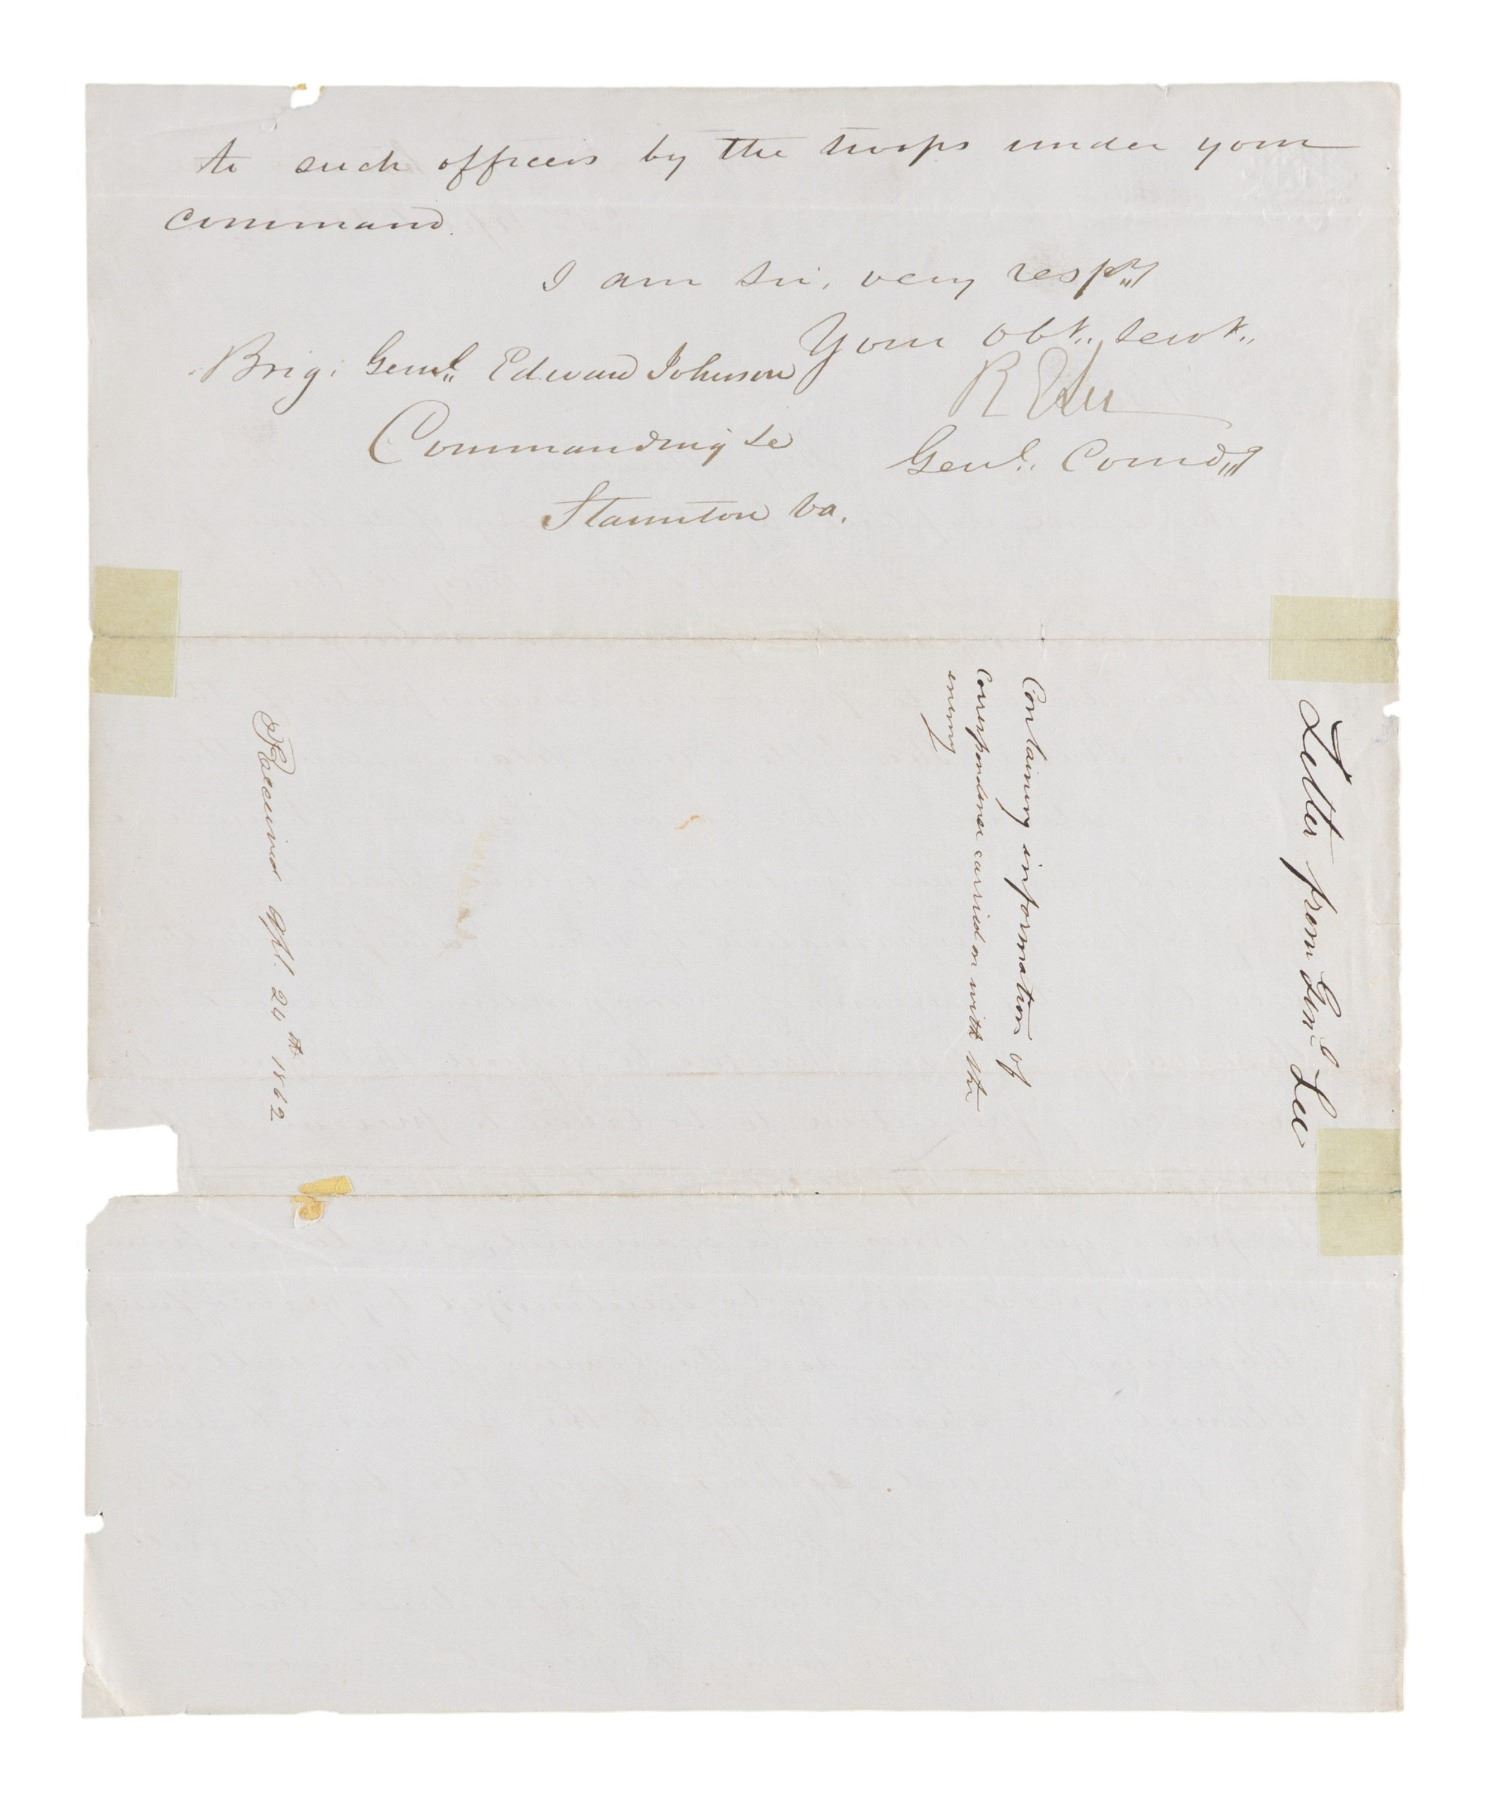 to such officers by the troops under your
command.
I am Sir, very respy
Your obt. Servt.
R E Lee
Genl. Comdg
Brig: Genl. Edward Johnson
Commanding &c
Staunton Va.
Letter from Genl Lee
Containing information of
correspondence carried on with the
enemy
Received Apl. 24th 1862